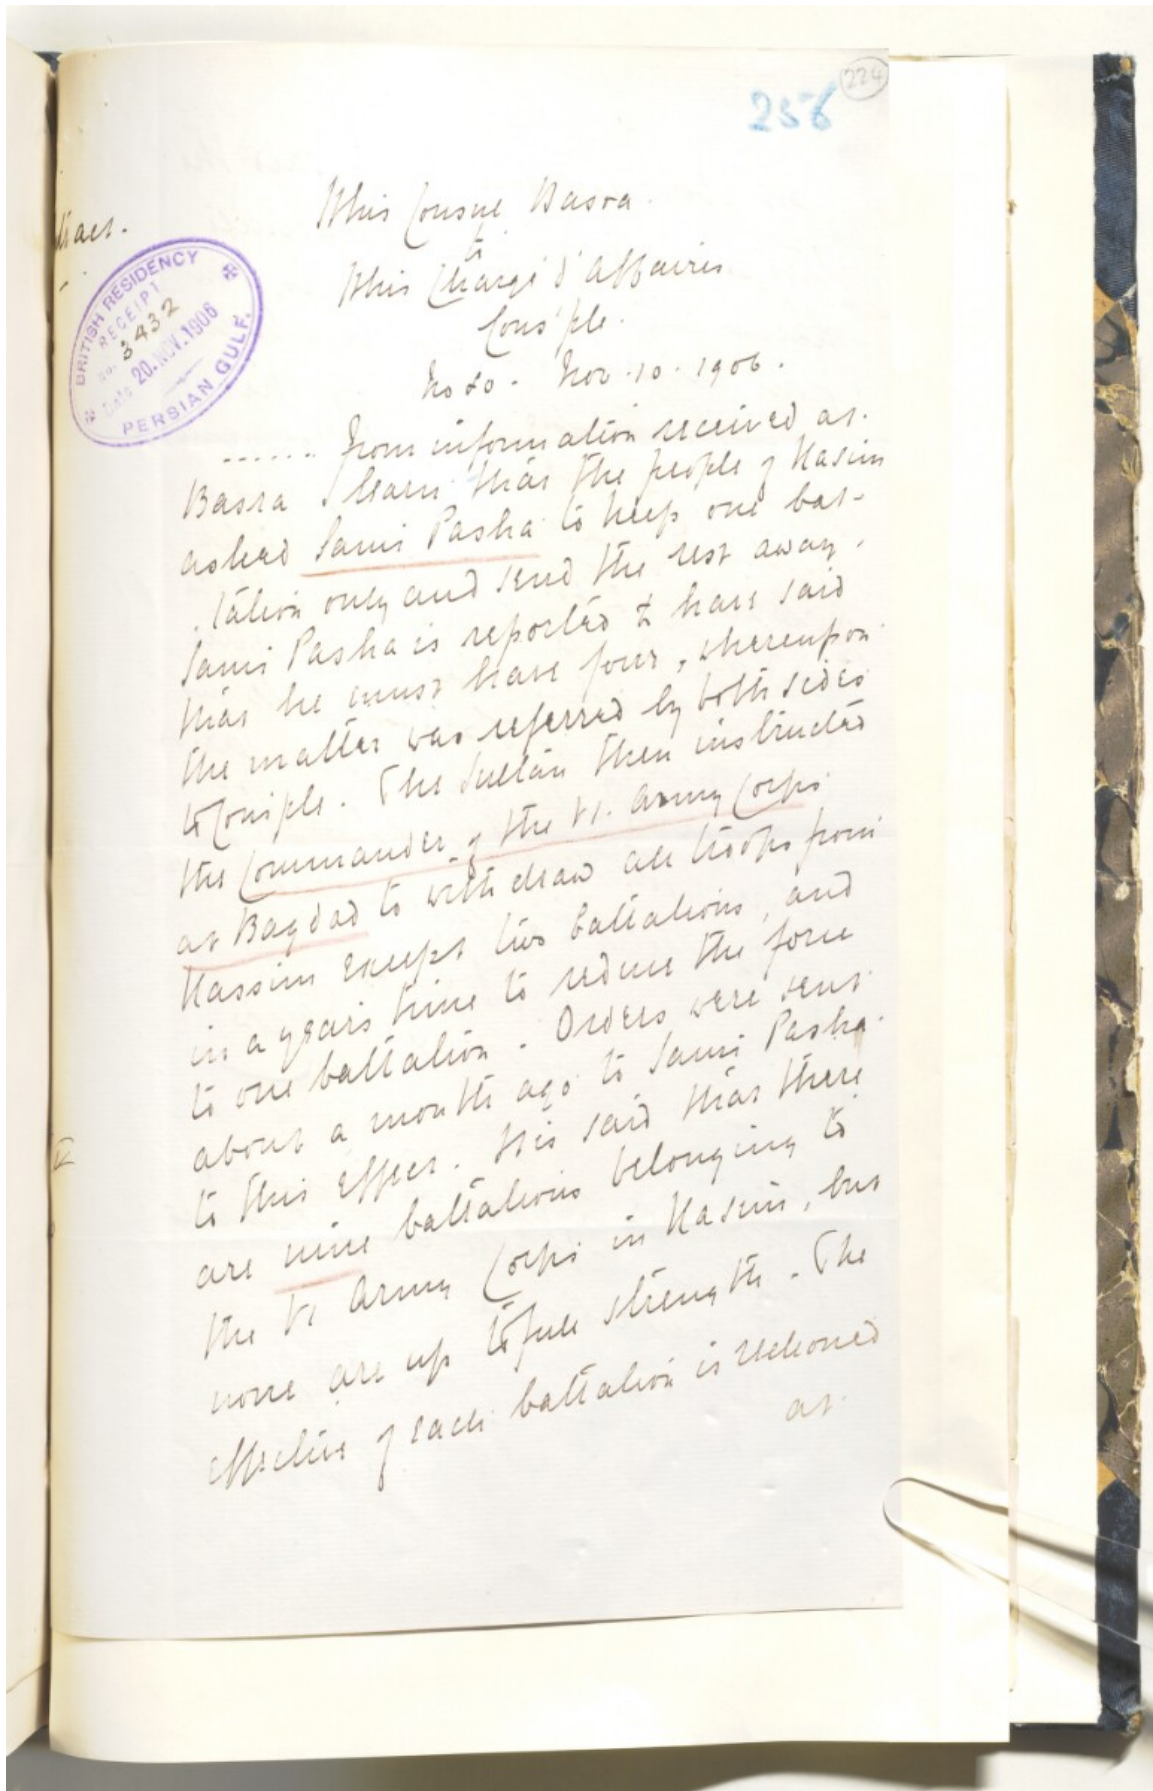 224
256
HMs Consul Basra.
to
HMs Chargé d'Affaires
Cons'ple.
No 80 - Nov. 10. 1906.
BRITISH RESIDENCY
RECEIPT
No. 3432
Date 20. NOV. 1906
PERSIAN GULF.
...... From information received at
Basra I learn that the people of Kasim
asked Sami Pasha to keep one bat-
talion only and send the rest away.
Sami Pasha is reported to have said
that he must have four, whereupon
the matter was referred by both sides
to Cons'ple. The Sultan then instructed
the Commander of the VI. Army Corps
at Bagdad to withdraw all troops from
Kassim except two battalions, and
in a years time to reduce the force
to one battalion. Orders were sent
about a month ago to Sami Pasha
to this effect. It is said that there
are nine battalions belonging to
the VI Army Corps in Kasim, but
none are up to full strength. The
effective of each battalion is reckoned
at